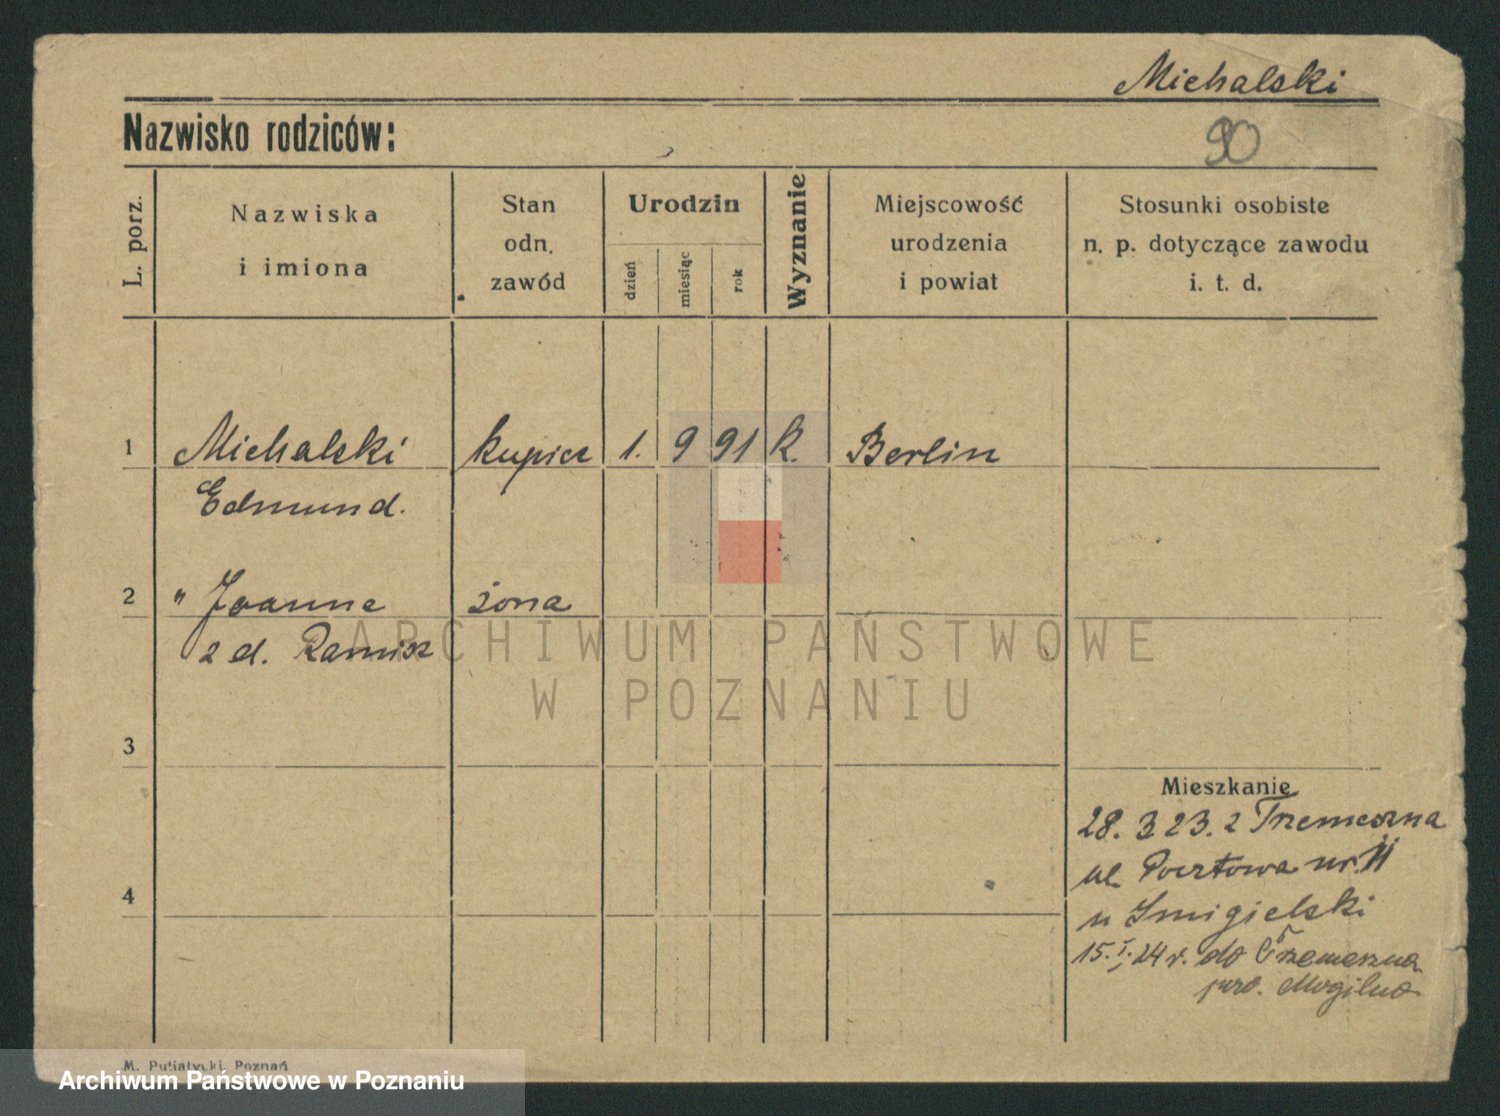 Michalski
Nazwisko rodziców:
90
L. porz.
Nazwiska
i imiona
Stan
odn.
zawód
Urodzin
dzień
miesiąc
rok
Wyznanie
Miejscowość
urodzenia
i powiat
Stosunki osobiste
n. p. dotyczące zawodu
i. t. d.
1 Michalski kupiec 1. 9 91 k. Berlin
Edmund.
2 " Joanna żona
z d. Ramisz
3
Mieszkanie
28. 3 23. z Trzemeszna
ul. Pocztowa nr. 11
u Smigielski
4
15. I. 24 r. do Trzemeszna
pow. Mogilno
ARCHIWUM PAŃSTWOWE
W POZNANIU
M. Putiatycki, Poznań
Archiwum Państwowe w Poznaniu